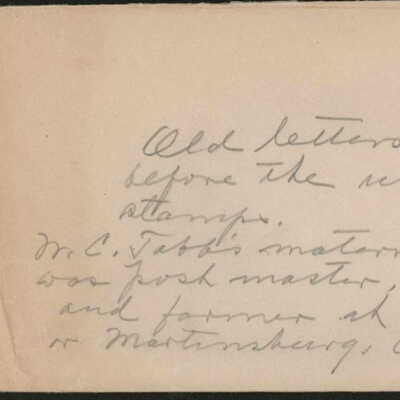 Old letters
before the
stamps.
W. C. Tabb's matern
was post master,
and farmer at
or Martinsburg,